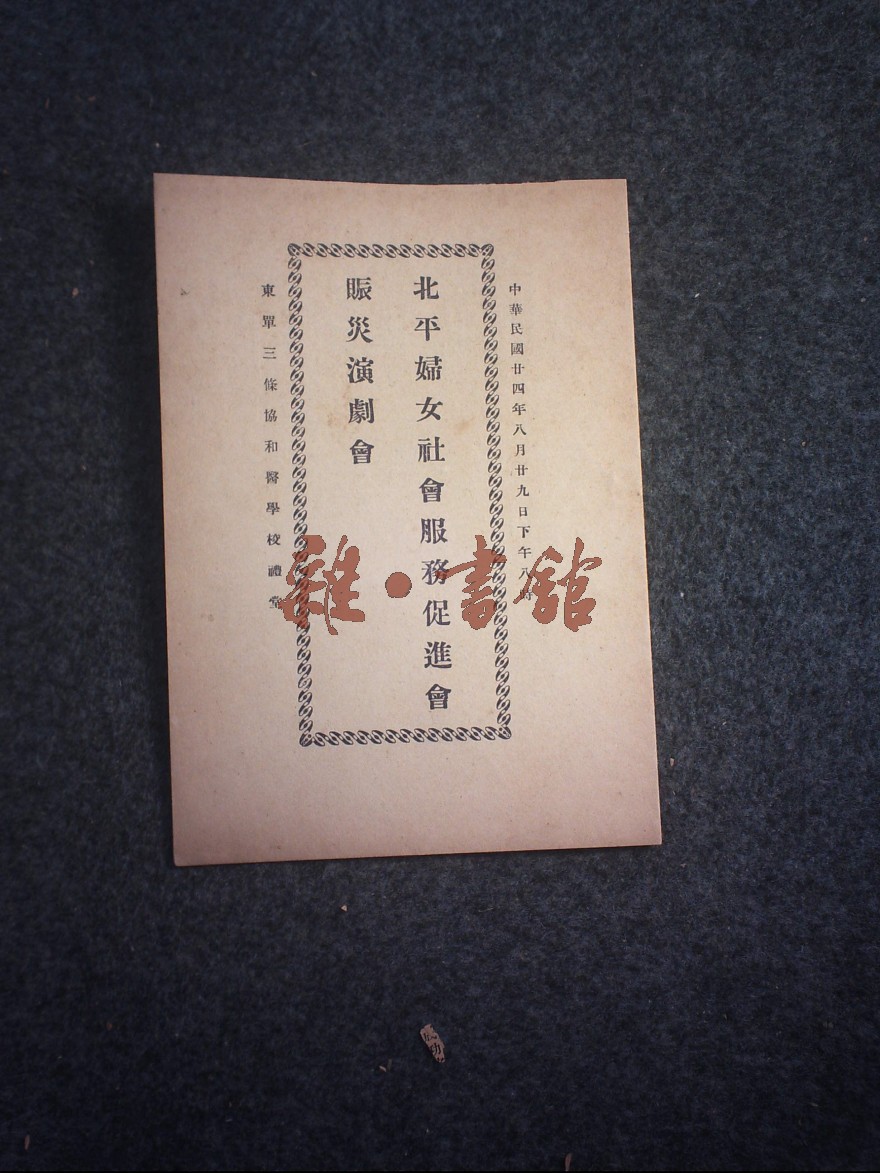 中華民國廿四年八月廿九日下午八時
北平婦女社會服務促進會
賑災演劇會
東單三條協和醫學校禮堂
雜·書館